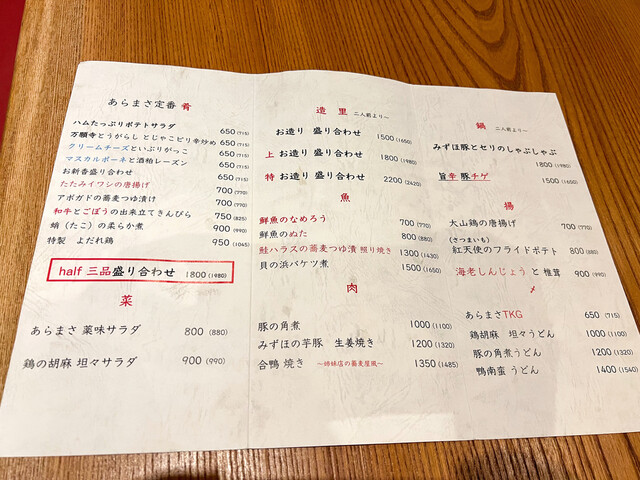 あらまさ定番 肴
ハムたっぷりポテトサラダ 650 (715)
万願寺とうがらし とじゃこピリ辛炒め 650 (715)
クリームチーズといぶりがっこ 650 (715)
マスカルポーネと酒粕レーズン 650 (715)
お新香盛り合わせ 650 (715)
たたみイワシの唐揚げ 700 (770)
アボガドの蕎麦つゆ漬け 700 (770)
和牛とごぼうの出来立てきんぴら 750 (825)
蛸(たこ)の柔らか煮 900 (990)
特製 よだれ鶏 950 (1045)
half 三品盛り合わせ 1800 (1980)
菜
あらまさ 薬味サラダ 800 (880)
鶏の胡麻 坦々サラダ 900 (990)
造 里 二人前より～
お造り 盛り合わせ 1500 (1650)
上 お造り 盛り合わせ 1800 (1980)
特 お造り 盛り合わせ 2200 (2420)
魚
鮮魚のなめろう 700 (770)
鮮魚のぬた 800 (880)
鮭ハラスの蕎麦つゆ漬 照り焼き 1300 (1430)
貝の浜バケツ煮 1500 (1650)
肉
豚の角煮 1000 (1100)
みずほの芋豚 生姜焼き 1200 (1320)
合鴨 焼き ～姉妹店の蕎麦屋風～ 1350 (1485)
鍋 二人前より～
みずほ豚とセリのしゃぶしゃぶ
1800 (1980)
旨辛 豚チゲ 1500 (1650)
揚
大山鶏の唐揚げ 700 (770)
(さつまいも)
紅天使のフライドポテト 800 (880)
海老しんじょう と 椎茸 900 (990)
〆
あらまさTKG 650 (715)
鶏胡麻 坦々うどん 1000 (1100)
豚の角煮うどん 1200 (1320)
鴨南蛮 うどん 1400 (1540)